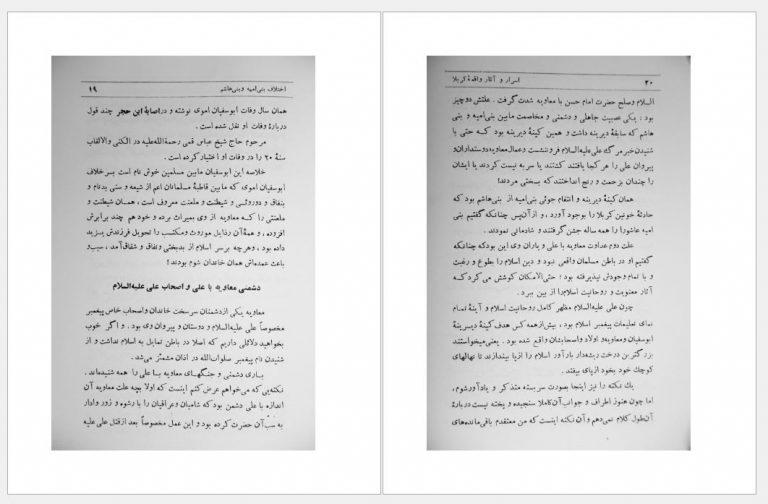 اختلاف بنی‌امیه و بنی‌هاشم ۱۹
همان سال وفات ابوسفیان اموی نوشته و در اصابهٔ ابن حجر چند قول
دربارهٔ وفات او نقل شده است .
مرحوم حاج شیخ عباس قمی رحمةالله‌علیه در الکنی والالقاب
سنهٔ ۲۰ را در وفات او اختیار کرده است .
خلاصه این ابوسفیان ما بین مسلمین خوش نام است برخلاف
ابوسفیان اموی که ما بین قاطبهٔ مسلمانان اعم از شیعه و سنی بدنام و
بنفاق و دوروئی و شیطنت و ملعنت معروف است ، همان شیطنت و
ملعنتی را که معاویه از وی بمیراث برده و خود هم چند برابرش
افزوده ، و همهٔ آن رذایل موروث ومکتسب را تحویل فرزندش یزید
داده بود ، وهرچه برسر اسلام از بدبختی ونفاق و شقاق‌آمد ، سبب‌و
باعث عمده‌اش همان خاندان شوم بودند !
دشمنی معاویه با علی و اصحاب علی علیه‌السلام
معاویه یکی ازدشمنان سرسخت خاندان واصحاب خاص پیغمبر
مخصوصاً علی علیه‌السلام و دوستان و پیروان وی بود . و اگر خوب
بخواهید دلائلی داریم که اصلا در باطن تمایل به اسلام نداشت و از
شنیدن نام پیغمبر صلوات‌الله در اذان مشمئز می‌شد .
باری دشمنی و جنگهای معاویه با علی را همه شنیده‌اند .
نکته‌یی که می‌خواهم عرض کنم اینست که اولا بچه علت معاویه آن
اندازه با علی دشمن بود که شامیان وعراقیان را با رشوه و زور وادار
به سبّ‌آن حضرت کرده بود و این عمل مخصوصاً بعد ازقتل علی علیه
۲۰ اسرار و آثار واقعهٔ کربلا
السلام وصلح حضرت امام حسن با معاویه شدت گرفت . علتش دوچیز
بود : یکی عصبیت جاهلی و دشمنی و مخاصمت مابین بنی‌امیه و بنی
هاشم که سابقهٔ دیرینه داشت و همین کینهٔ دیرینه بود که حتی با
شنیدن‌خبر مرگ علی‌علیه‌السلام فرو ننشست وعمال‌معاویه دوستداران‌و
پیروان علی را هر کجا یافتند کشتند یا سر به نیست کردند یا ایشان
را چندان بزحمت و رنج انداختند که بسختی مردند!
همان کینهٔ دیرینه و انتقام جوئی بنی‌امیه از بنی‌هاشم بود که
حادثهٔ خونین کربلا را بوجود آورد ، و از آن‌پس چنانکه گفتیم بنی
امیه عاشورا را همه ساله جشن گرفتند و شادمانی نمودند .
علت دوم عداوت معاویه با علی و یاران وی این بود که چنانکه
گفتیم او در باطن مسلمان واقعی نبود و دین اسلام را بطوع و رغبت
و با تمام وجودش نپذیرفته بود ؛ حتی‌الامکان کوشش می کرد که
آثار معنویت و روحانیت اسلام را از بین ببرد .
چون علی علیه‌السلام مظهر کامل روحانیت اسلام و آینهٔ تمام
نمای تعلیمات پیغمبر اسلام بود ، بیش‌ازهمه کس هدف کینهٔ دیرینهٔ
ابوسفیان ومعاویه‌و اولاد واصحابشان واقع شده بود . یعنی‌میخواستند
بزرگترین درخت ریشه‌دار بارآور اسلام را ازپا بیندازند تا نهالهای
کوچک خود بخود ازپای بیفتد .
یک نکته را نیز اینجا بصورت سربسته متذکر و یادآورشوم،
اما چون هنوز اطراف و جوانب آن‌کاملا سنجیده و پخته نیست دربارهٔ
آن‌طول کلام نمی‌دهم و آن نکته اینست که من معتقدم باقی‌مانده‌های